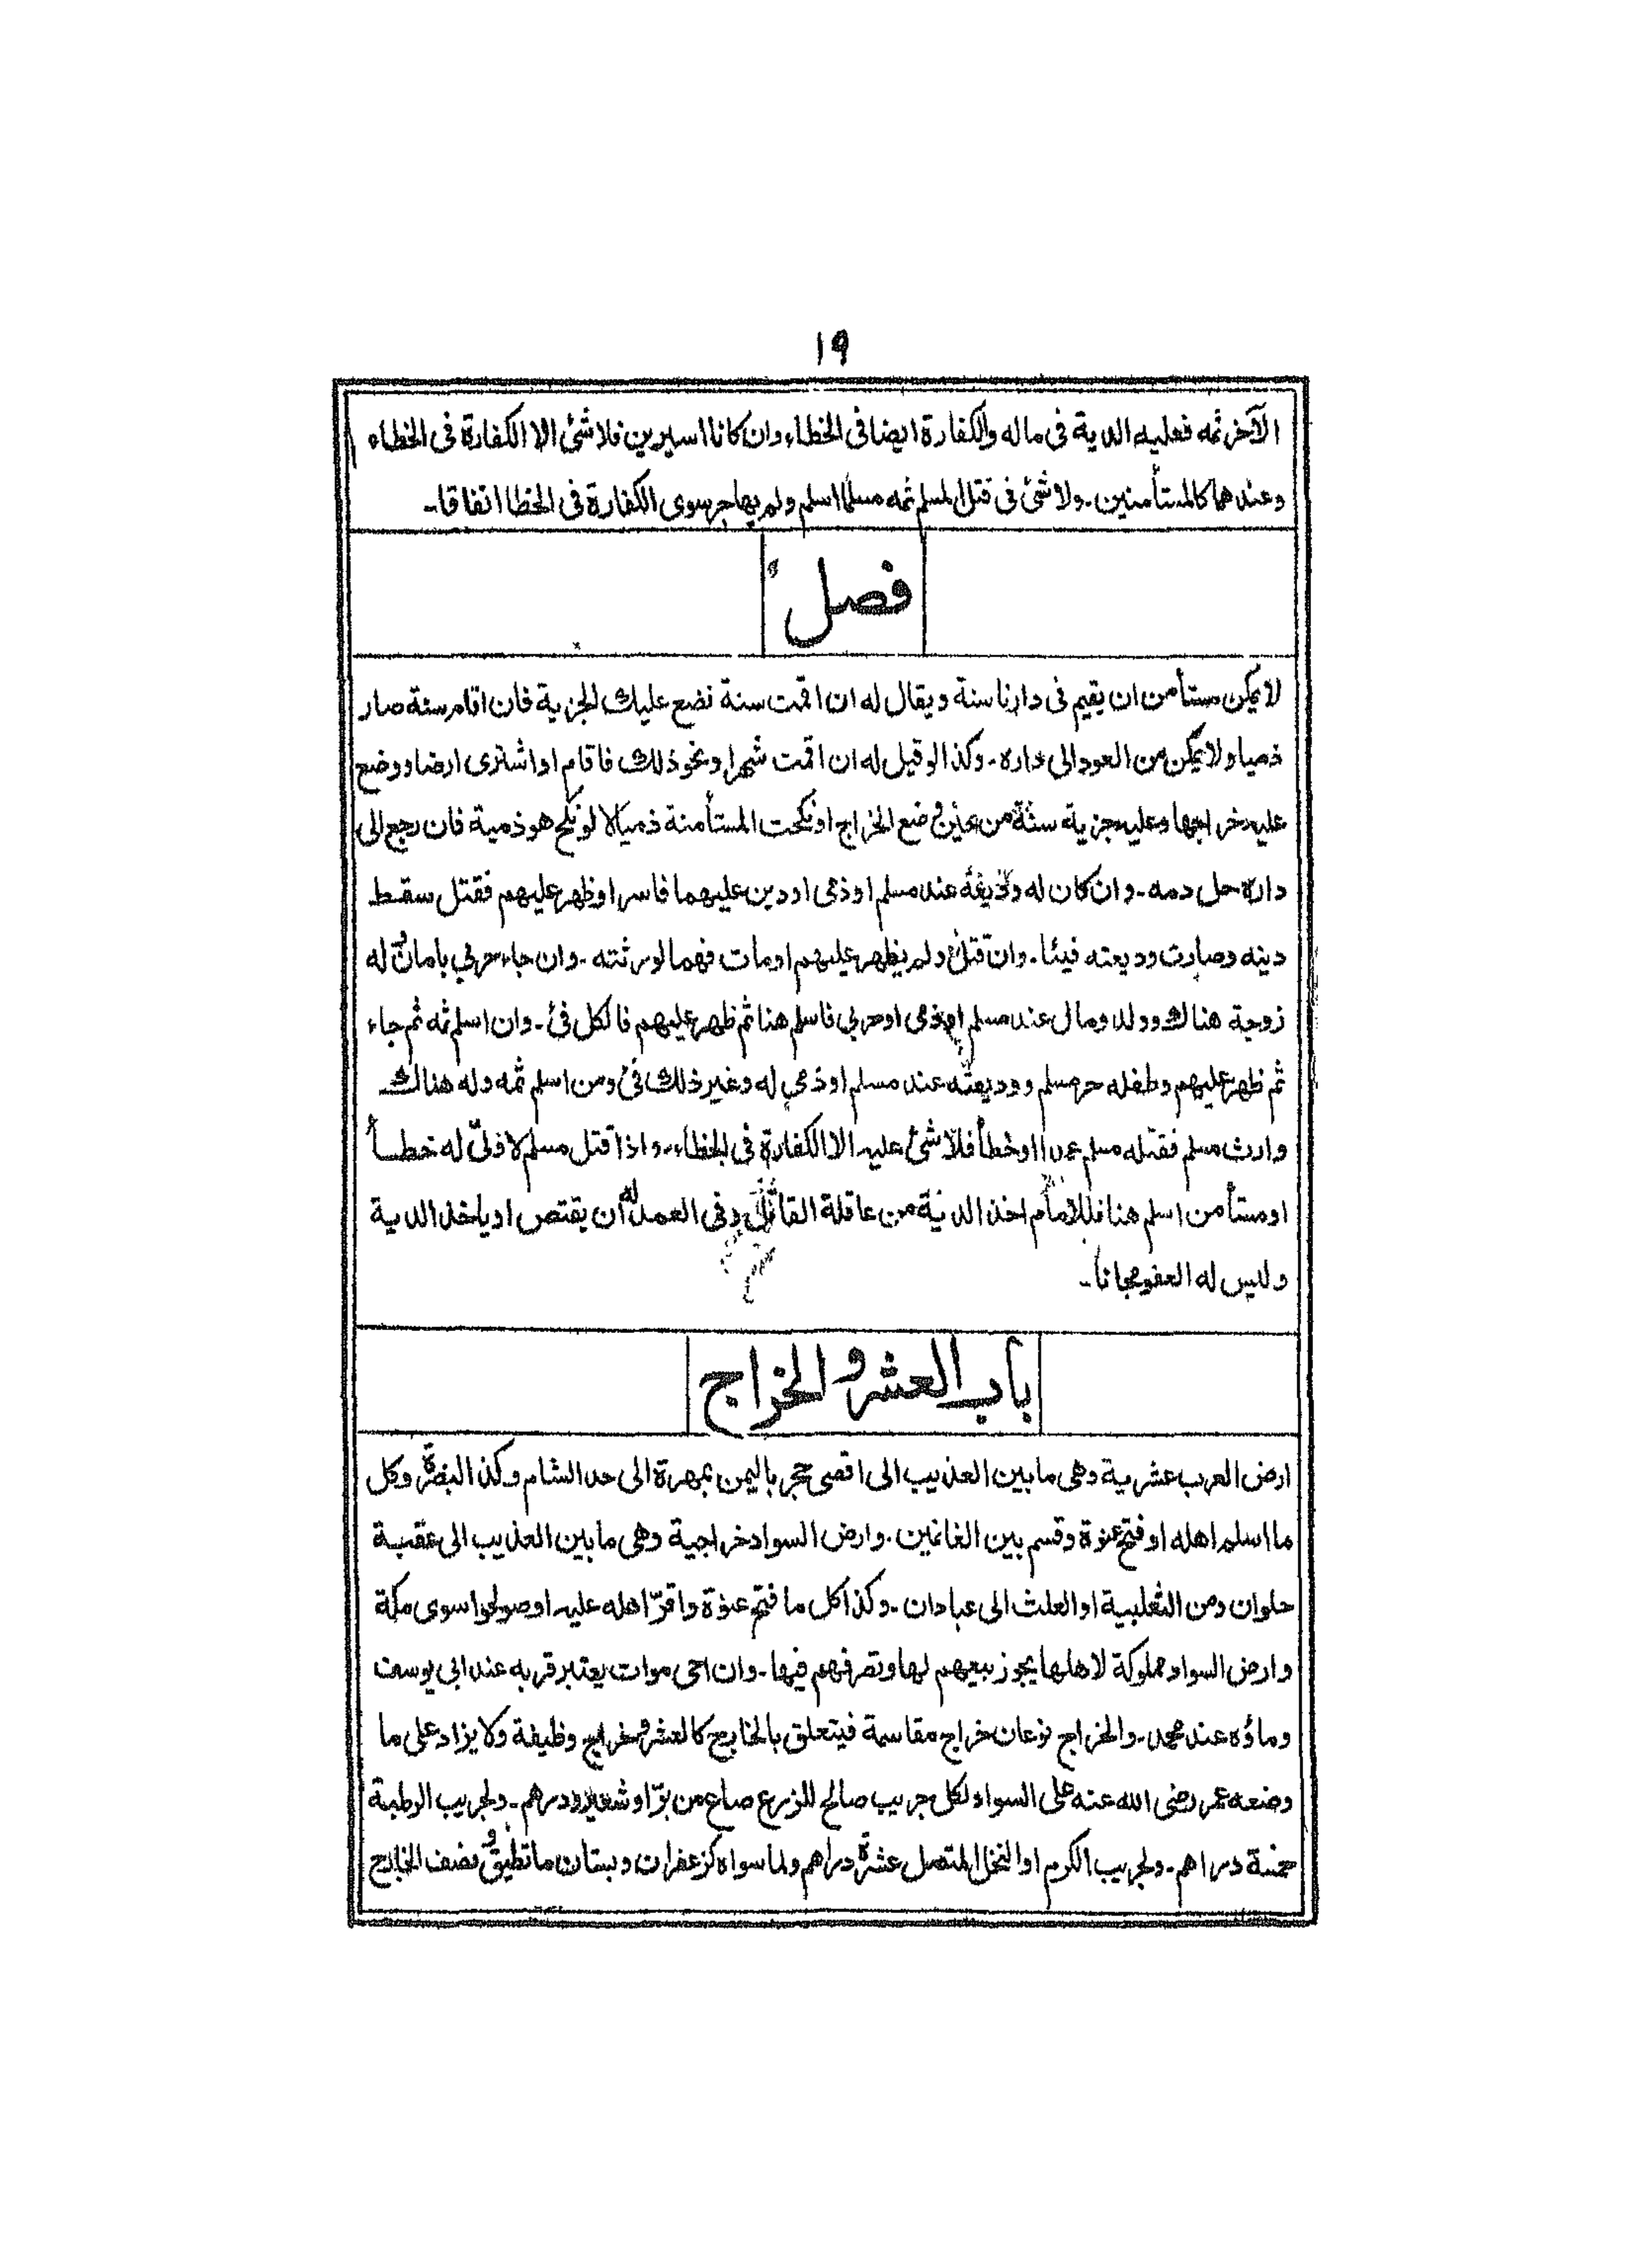 ١٩
الآخر ثمه فعليه الدية فى ماله والكفارة ايضا فى الخطاء وان كانا اسيرين فلا شئ الا الكفارة فى الخطاء
وعندهما كالمستأمنين ـ ولا شئ فى قتل المسلم ثمه مسلما اسلم ولم يهاجر سوى الكفارة فى الخطا اتفاقا ـ
فصل
لا يمكن مستأمن ان يقيم فى دارنا سنة ويقال له ان اقمت سنة نضع عليك الجزية فان اقام سنة صار
ذميا ولا يمكن من العود الى داره ـ وكذا لو قيل له ان اقمت شهرا ونحو ذلك فاقام او اشترى ارضا ووضع
عليه خراجها وعليه جزية سنة من حين وضع الخراج او نكحت المستأمنة ذميا لا لو نكح هو ذمية فان رجع الى
داره حل دمه ـ وان كان له وديعة عند مسلم او ذمى او دين عليهما فاسر او ظهر عليهم فقتل سقط
دينه وصارت وديعته فيئا ـ وان قتل ولم يظهر عليهم او مات فهما لورثته ـ وان جاء حربي بامان وله
زوجة هناك وولد ومال عند مسلم او ذمى او حربي فاسلم هنا ثم ظهر عليهم فالكل فئ ـ وان اسلم ثمه ثم جاء
ثم ظهر عليهم وطفله حر مسلم ووديعته عند مسلم او ذمي له وغير ذلك فئ ومن اسلم ثمه وله هناك
وارث مسلم فقتله مسلم عمدا او خطأ فلا شئ عليه الا الكفارة فى الخطاء ـ واذا قتل مسلم لا ولىّ له خطأ
او مستأمن اسلم هنا فللامام اخذ الدية من عاقلة القاتل وفى العمد له ان يقتص او ياخذ الدية
وليس له العفو مجانا ـ
باب العشر والخراج
ارض العرب عشرية وهى ما بين العذيب الى اقصى حجر باليمن بمهرة الى حد الشام وكذا البصرة وكل
ما اسلم اهله او فتح عنوة وقسم بين الغانمين ـ وارض السواد خراجية وهى ما بين العذيب الى عقبة
حلوان ومن الثعلبية او العلث الى عبادان ـ وكذا كل ما فتح عنوة واقرّ اهله عليه او صولحوا سوى مكة
وارض السواد مملوكة لاهلها يجوز بيعهم لها وتصرفهم فيها ـ وان احى موات يعتبر قربه عند ابى يوسف
وماؤه عند محمد ـ والخراج نوعان خراج مقاسمة فيتعلق بالخارج كالعشر وخراج وظيفة ولا يزاد على ما
وضعه عمر رضى الله عنه على السواد لكل جريب صالح للزرع صاع من برّ او شعير ودرهم ـ ولجريب الرطبة
خمسة دراهم ـ ولجريب الكرم او النخل المتصل عشرة دراهم ولما سواه كزعفران وبستان ما تطيق ونصف الخارج